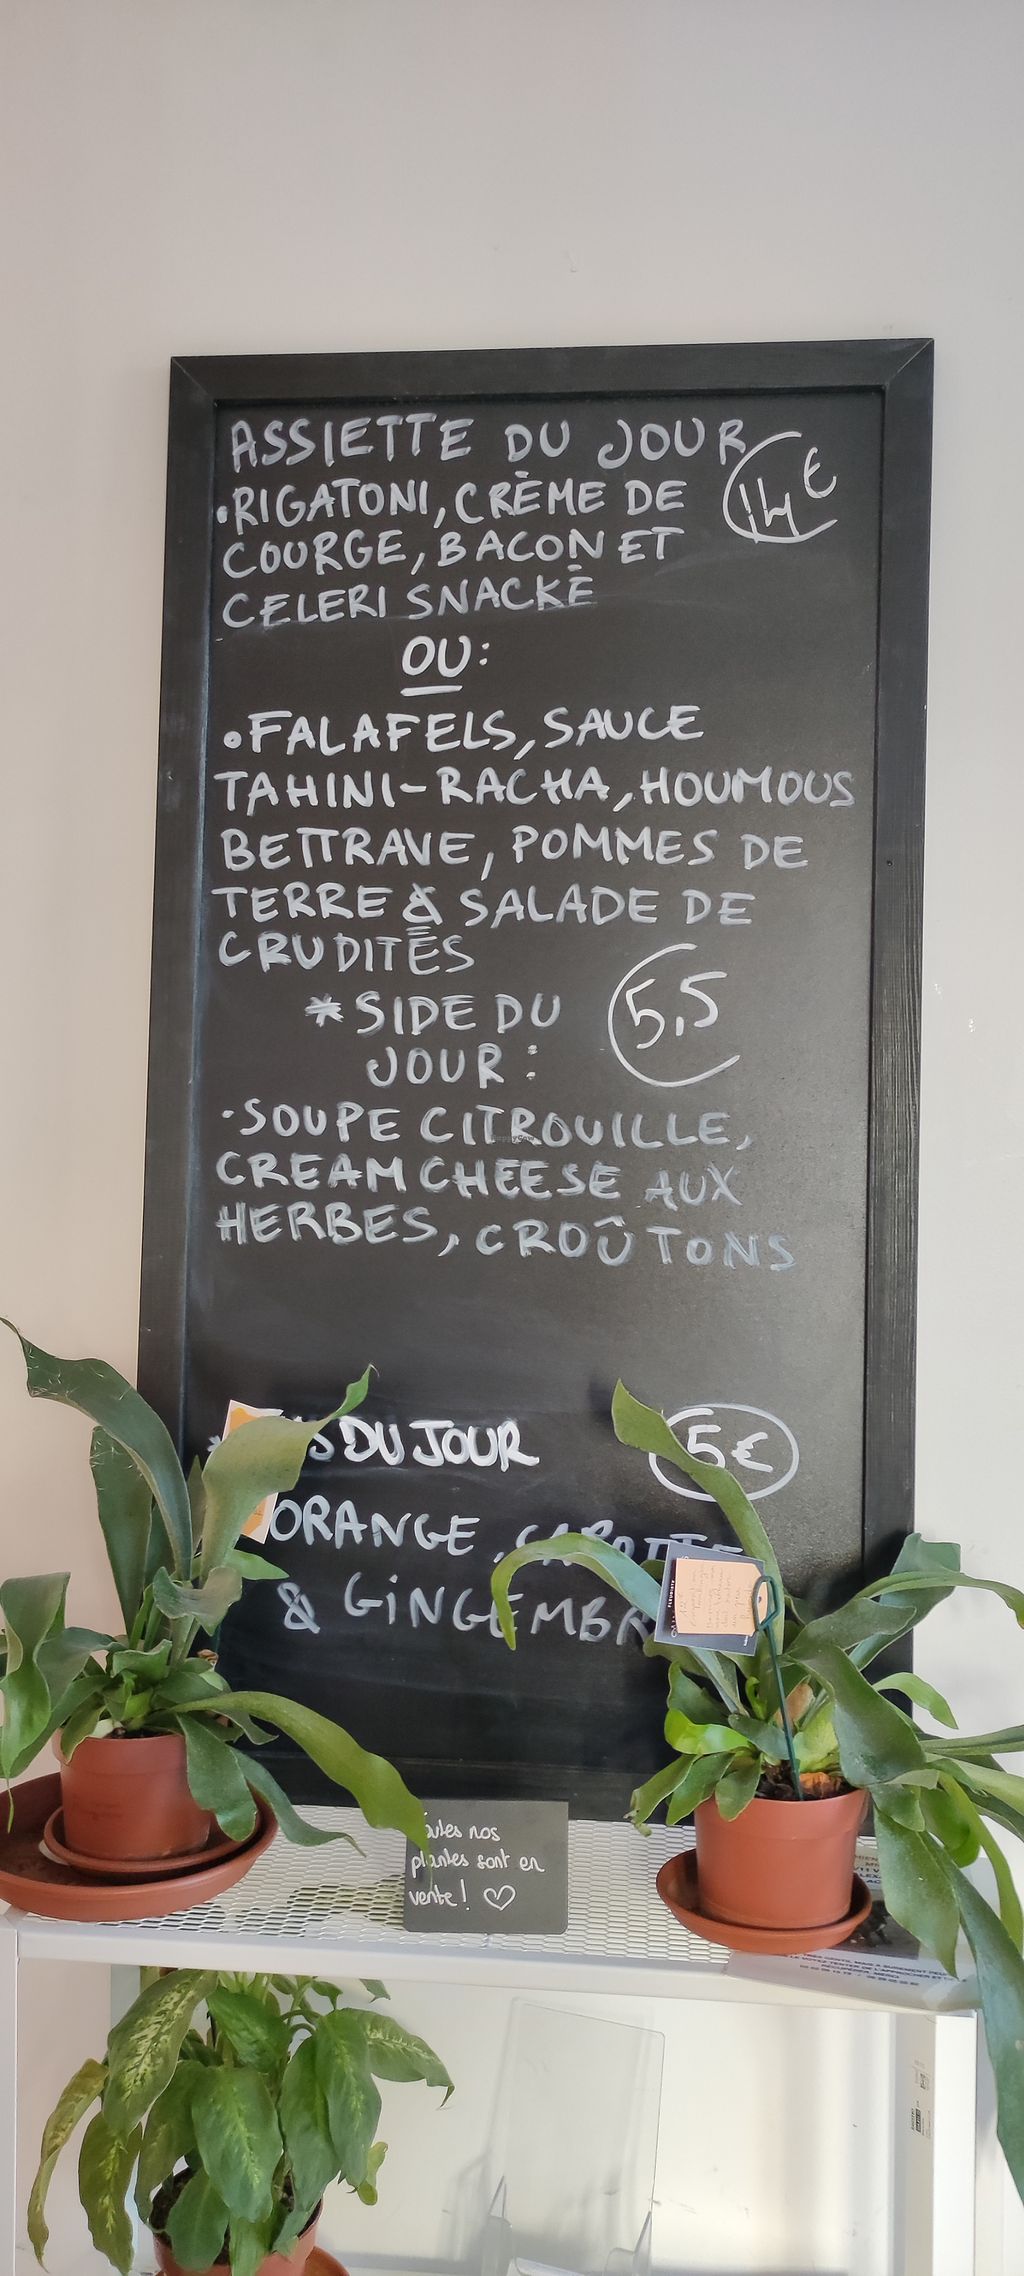 ASSIETTE DU JOUR
14€
•RIGATONI, CRÈME DE
COURGE, BACON ET
CELERI SNACKÉ
OU:
•FALAFELS, SAUCE
TAHINI-RACHA, HOUMOUS
BETTRAVE, POMMES DE
TERRE & SALADE DE
CRUDITÉS
* SIDE DU
JOUR:
5,5
•SOUPE CITROUILLE,
CREAM CHEESE AUX
HERBES, CROÛTONS
DU JOUR
5€
ORANGE,
& GINGEMBR
nos
plantes sont en
vente! ♡